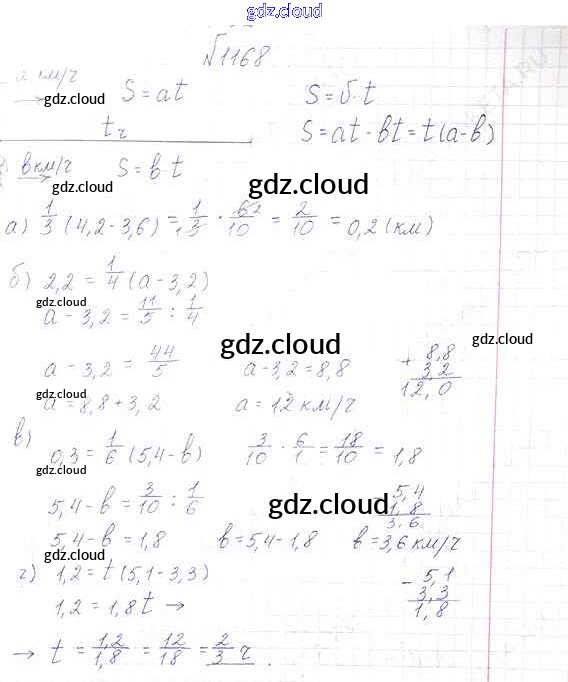 gdz.cloud
№1168
a км/ч
gdz.cloud S = at S = v·t
t ч S = at - bt = t(a-b)
b км/ч S = b·t
gdz.cloud gdz.cloud
а) 1/3 (4,2-3,6) = 1/3 · 6/10 = 2/10 = 0,2 (км)
gdz.cloud
б) 2,2 = 1/4 (a-3,2)
gdz.cloud
a-3,2 = 11/5 : 1/4
gdz.cloud gdz.cloud
a-3,2 = 44/5 a-3,2 = 8,8 + 8,8
3 2
12,0
gdz.cloud
a = 8,8+3,2 a = 12 км/ч
в) 0,3 = 1/6 (5,4-b) 3/10 · 6/1 = 18/10 = 1,8
gdz.cloud
5,4-b = 3/10 : 1/6 - 5,4
1,8
3,6
gdz.cloud gdz.cloud
5,4-b = 1,8 b = 5,4-1,8 b = 3,6 км/ч
г) 1,2 = t(5,1-3,3) - 5,1
3,3
1,8
gdz.cloud gdz.cloud
1,2 = 1,8t →
→ t = 1,2/1,8 = 12/18 = 2/3 ч
gdz.cloud